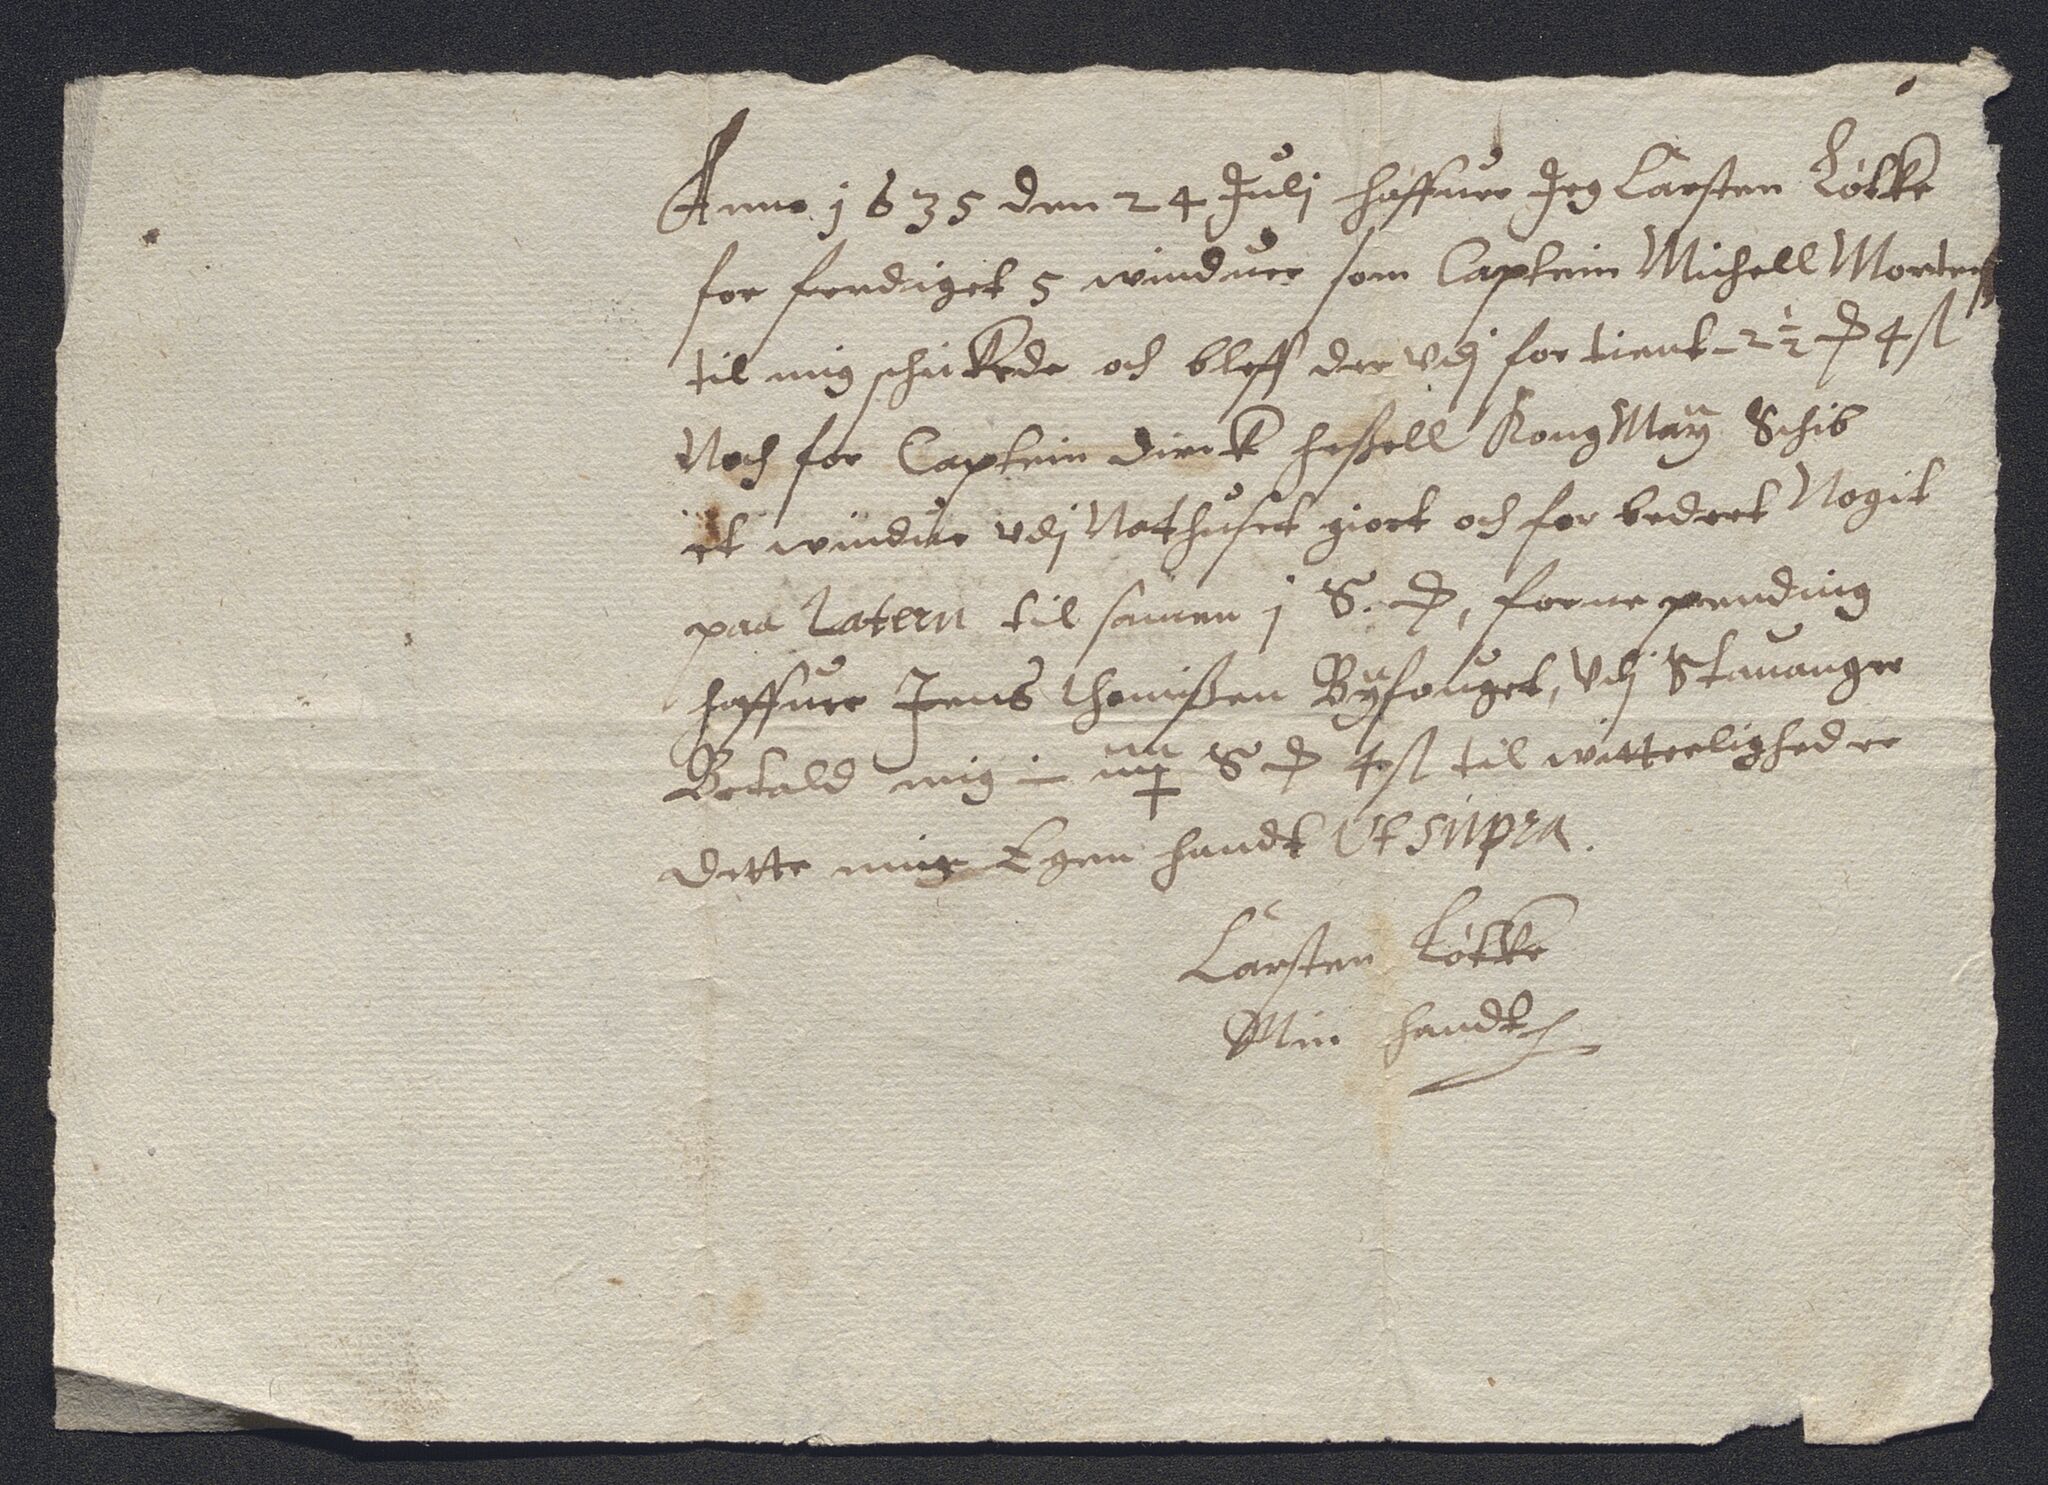 Anno 1635 den 24 Julj haffuer Jeg Carsten Løtke
for ferdiget 5 winduer som Captein Michell Mortenß
til mig schickede och bleff der vdj for tient 2½ D 4 ß
Noch for Captein Dirck heßell Kong May Schib
et windue vdj Nathuset giort och for bedret Nogit
paa Latern til samen j S. D, forne pending
haffuer Jens thomißen Byfouget, Vdj Stauanger
Betald mig S D 4 ß til witterlighed er
dette mig Egen handt Ut supra.
Carsten Løtke
Min handt